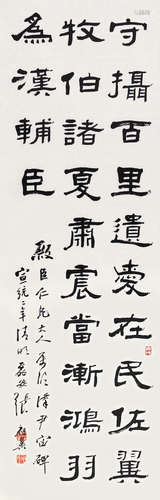 守攝百里遺愛在民佐翼
牧伯諸夏肅震當漸鴻羽
爲漢輔臣
殿臣仁兄大人屬臨漢尹宙碑
宣統二年清明磊盦張祖翼